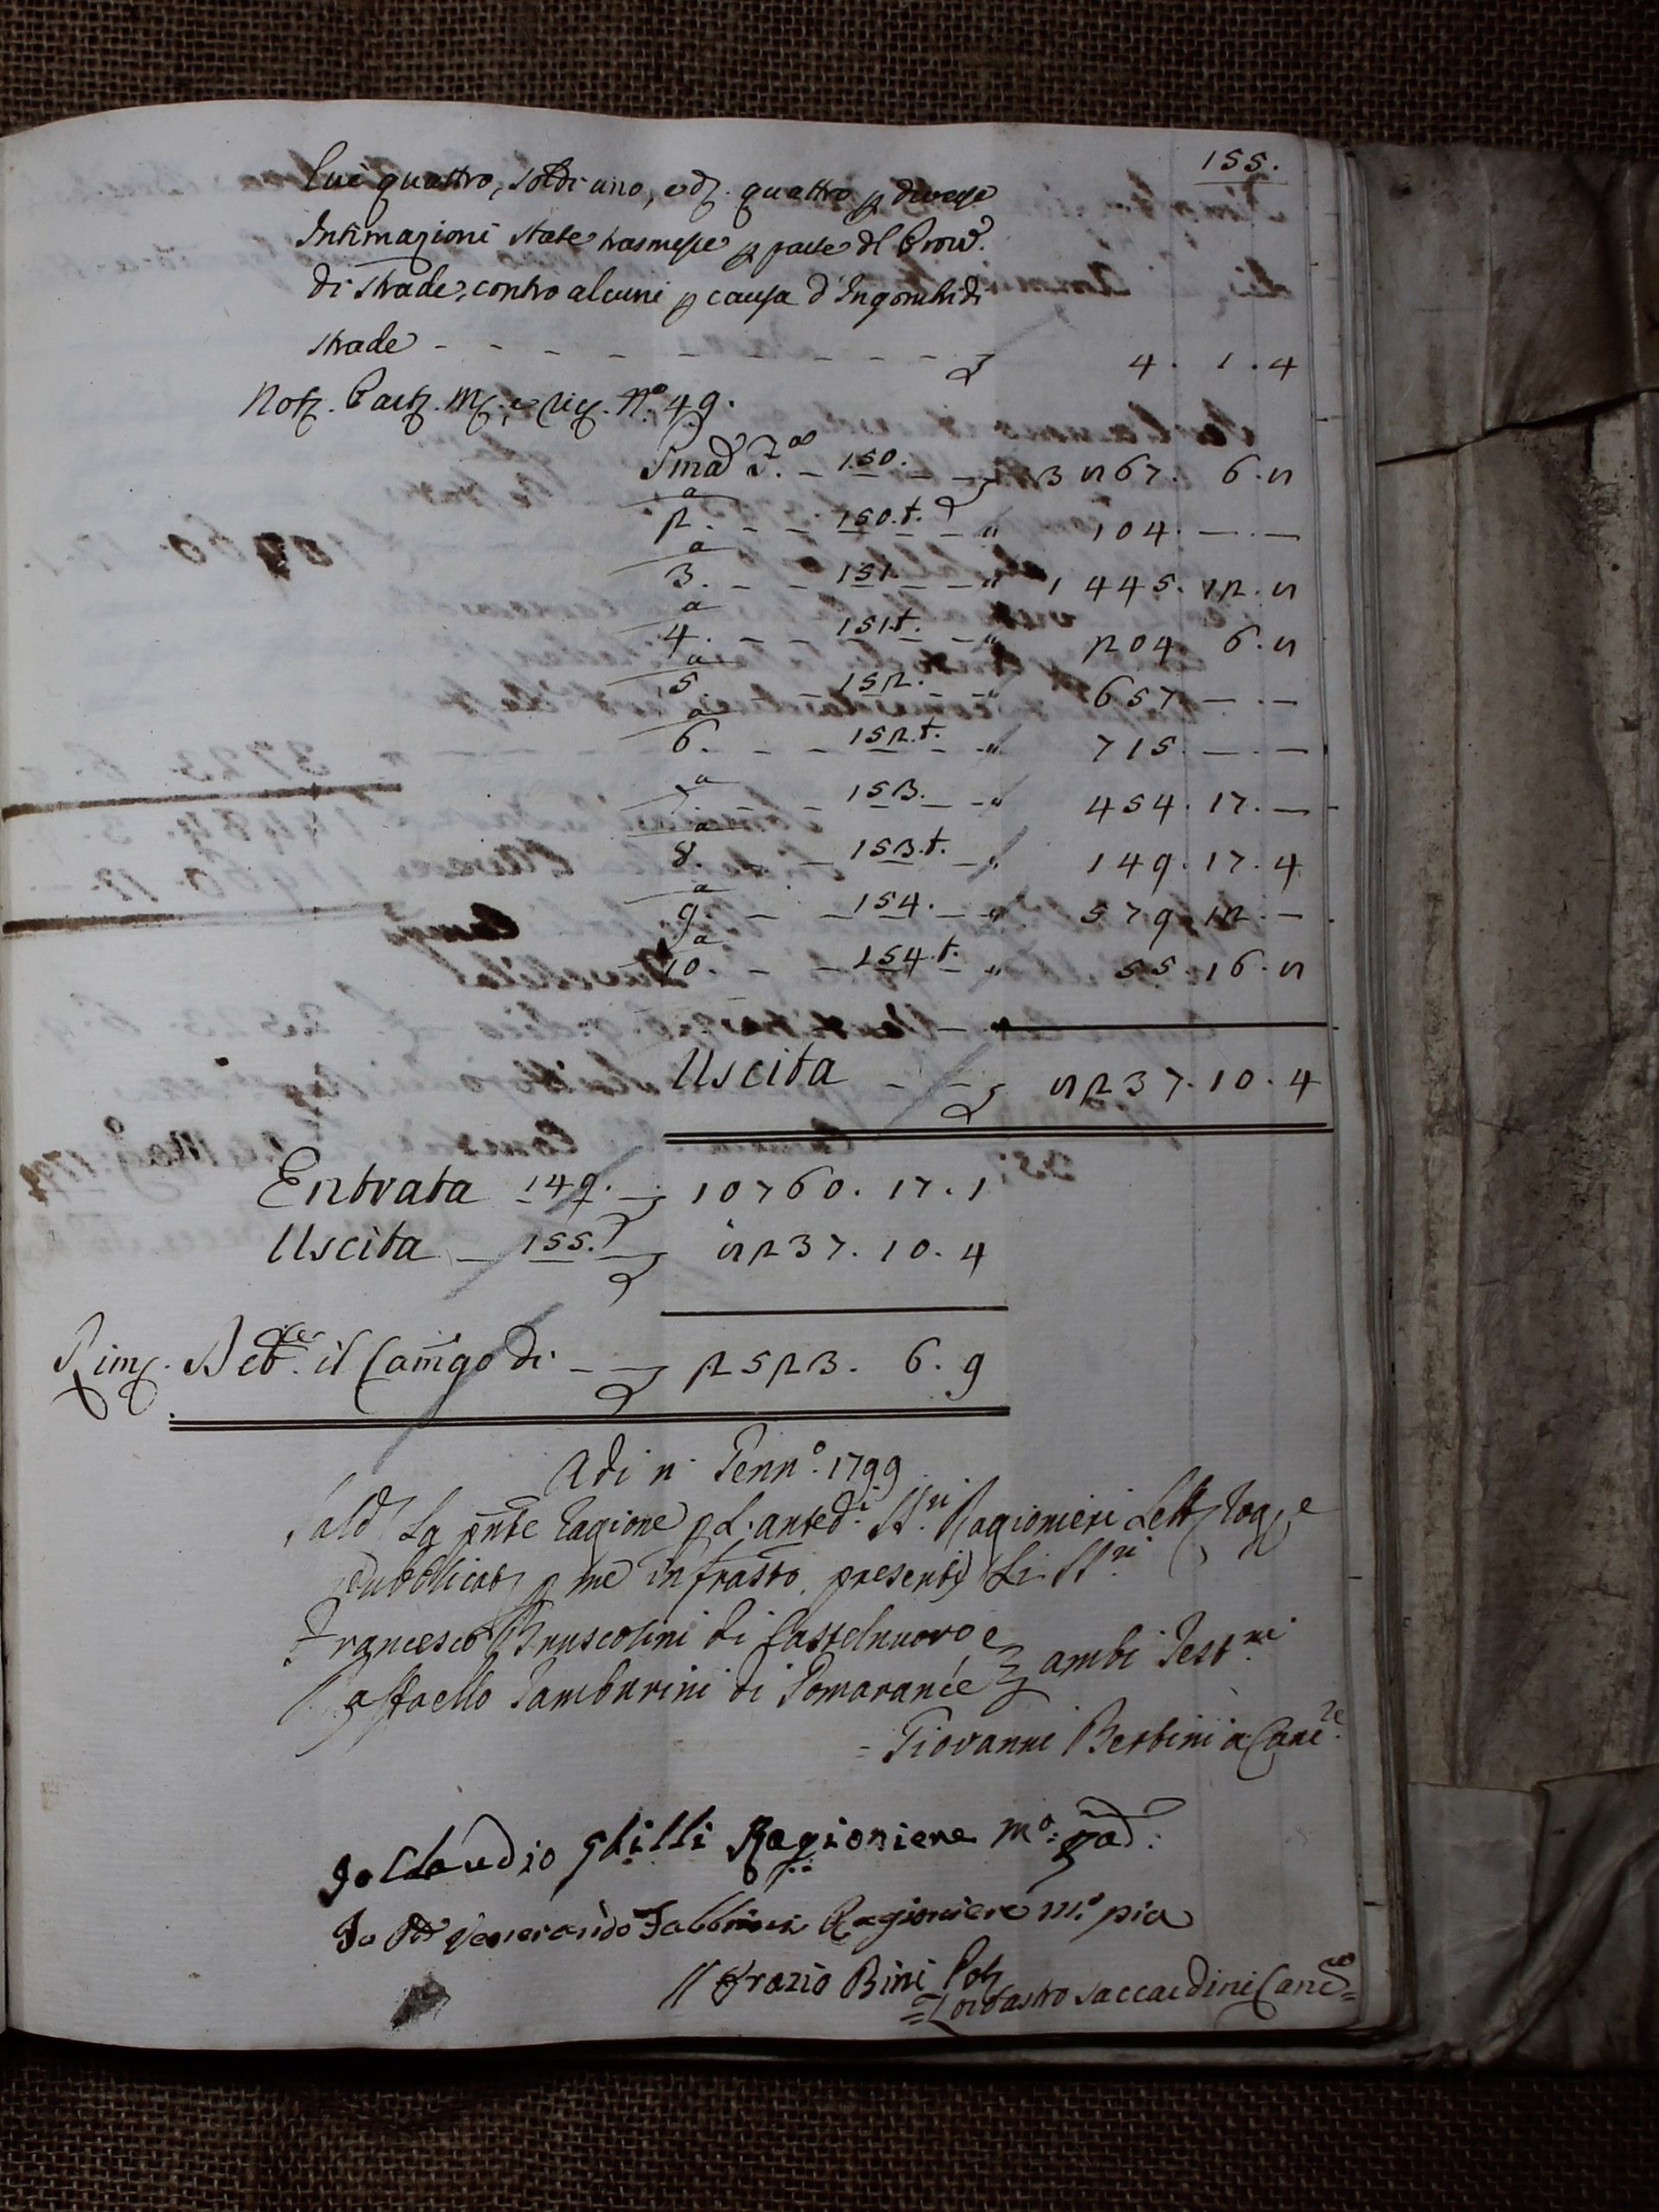 155.
Lire quattro, soldi uno, e d. quattro p diverse
Intimazioni state trasmesse p parte dl Provd.
di strade, contro alcuni p causa d'Ingombri di
strade - - - - - - - - - £ 4. 1. 4
Not. Part. M. e ric. N.° 49.
Pma F.a - 150. - - £ 3867. 6. 8
2.a - - 150.t. - " 104. - . -
3.a - - 151. - - " 1445. 12. 8
4.a - - 151.t. - " 204 6. 8
5.a 152. - - " 657 - . -
6.a - - 152.t. - " 715. - . -
7.a - - 153. - " 454. 17. -
8.a - 153.t. - " 149. 17. 4
9.a - - 154. - " 579. 12. -
10.a - - 154.t. - " 55. 16. 8
Uscita - - £ 8237. 10. 4
Entrata 149. - £ 10760. 17. 1
Uscita - 155. - £ 8237. 10. 4
Rim. Deb.re il Camgo di - - £ 2523. 6. 9
Adi 8. Genn.° 1799
Sald. La pnte Ragione p L. anted.i SS.ri Ragionieri Lett. Rog. e
pubblicat. p me infrastto, presenti Li SS.ri
Francesco Bruscolini di Castelnuovo e
Raffaello Tamburini di Pomarance } ambi Test.ni
= Giovanni Berbini a Canc.re
Io Claudio Ghilli Ragioniere m.° pad:
Io Venerando Fabbrini Ragioniere m.° pia
Orazio Bini Pot.
= Zoroastro Saccardini Canc.° =